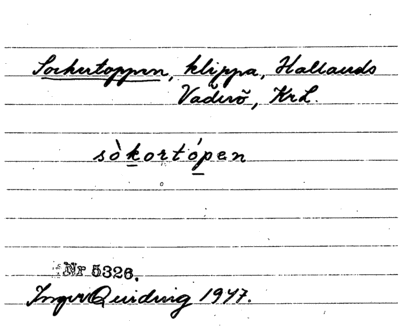 Sockertoppen, klippa, Hallands
Väderö, KrL.
sòkortópen
Nr 5326.
Ingvar Quiding 1947.